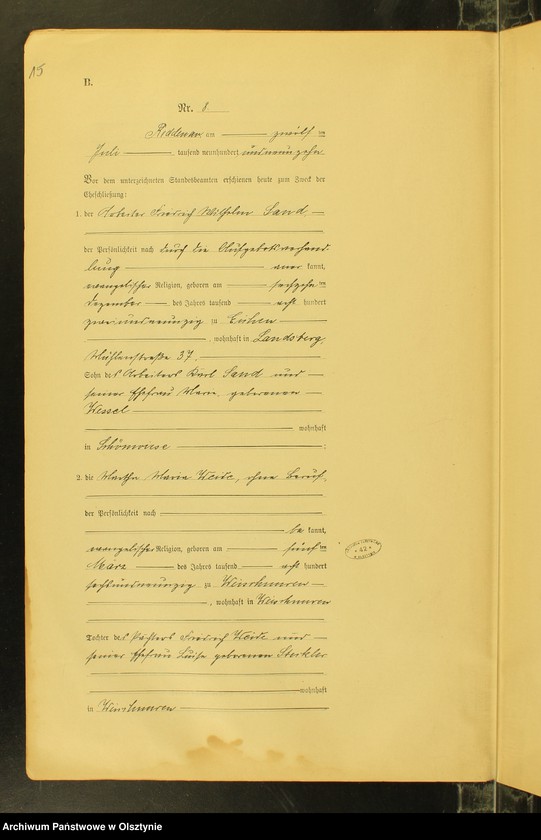 15
B.
Nr. 8
am zwölften
Juli tausend neunhundert undneunzehn
Vor dem unterzeichneten Standesbeamten erschienen heute zum Zweck der
Eheschließung:
1. der Arbeiter Friedrich Wilhelm Sand
der Persönlichkeit nach durch die Aufgebotsverhand
lung aner kannt,
evangelischer Religion, geboren am sechzehnten
Dezember des Jahres tausend acht hundert
zweiundneunzig zu
, wohnhaft in Landsberg,
Mühlenstraße 37,
Sohn des Arbeiters Karl Sand und
seiner Ehefrau geborenen
Wessel
wohnhaft
in Schönwiese ;
2. die Martha Maria Weide, ohne Beruf,
der Persönlichkeit nach
be kannt,
evangelischer Religion, geboren am fünften
März des Jahres tausend acht hundert
sechsundneunzig zu Worschienen
, wohnhaft in Worschienen
Tochter des Friedrich Weide und
seiner Ehefrau Luise geborenen
wohnhaft
in Worschienen
42
Archiwum Państwowe w Olsztynie